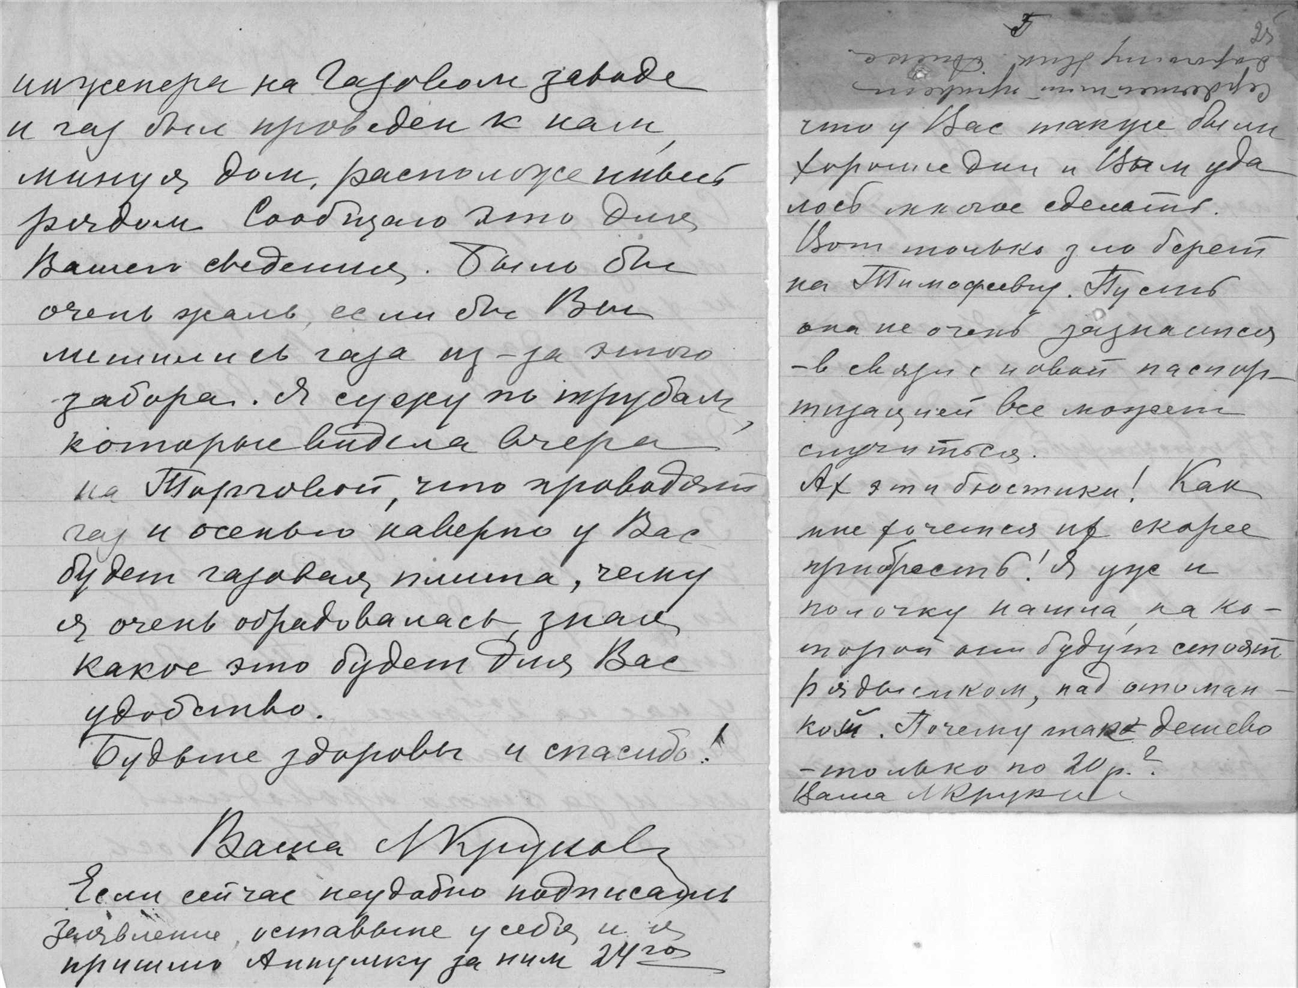 инженера на Газовом заводе
и газ был проведен к нам,
минуя дом, расположенный
рядом. Сообщаю это для
Вашего сведения. Было бы
очень жаль, если бы Вы
лишились газа из-за этого
забора. Я сужу по трубам,
которые видела вчера
на Торговой, что проводят
газ и осенью наверно у Вас
будет газовая плита, чему
я очень обрадовалась, зная
какое это будет для Вас
удобство.
Будьте здоровы и спасибо!
Ваша
Если сейчас неудобно подписать
заявление, оставьте у себя и я
пришлю Аннушку за ним 24го
25
Сердечный привет
дорогому
что у Вас также были
хорошие дни и Вам уда
лось многое сделать.
Вот только зло берет
на Тимофеевну. Пусть
она не очень зазнается
-в связи с новой паспор-
тизацией все может
случиться.
Ах эти бюстики! Как
мне хочется их скорее
приобресть! Я уж и
полочку нашла, на ко-
торой они будут стоять
рядышком, над отоман-
кой. Почему так дешево
-только по 20 р.?
Ваша